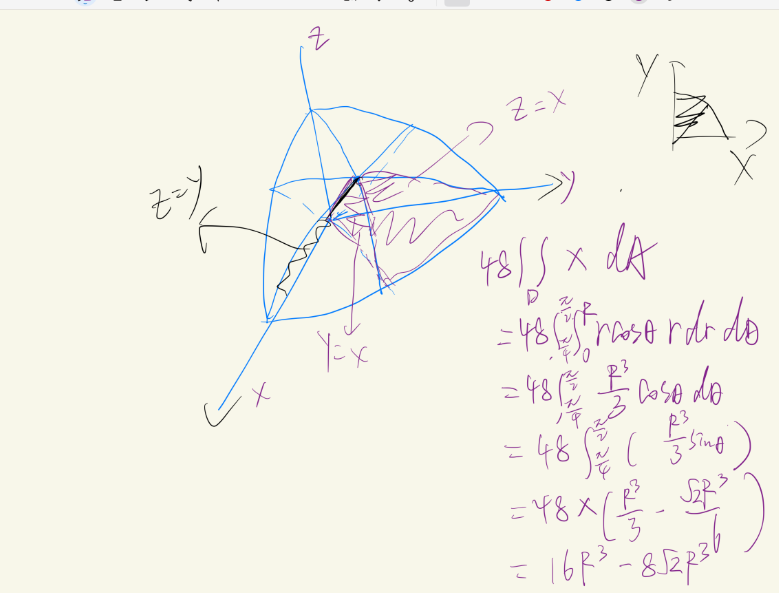 Z
Z=X
Y
X
Z=Y
Y
Y=X
X
48∬_D x dA
=48∫_{π/4}^{π/2}∫_0^R rcosθ r dr dθ
=48∫_{π/4}^{π/2} R³/3 cosθ dθ
=48∫_{π/4}^{π/2} ( R³/3 sinθ )
=48×(R³/3 - √2R³/6)
= 16R³ - 8√2R³